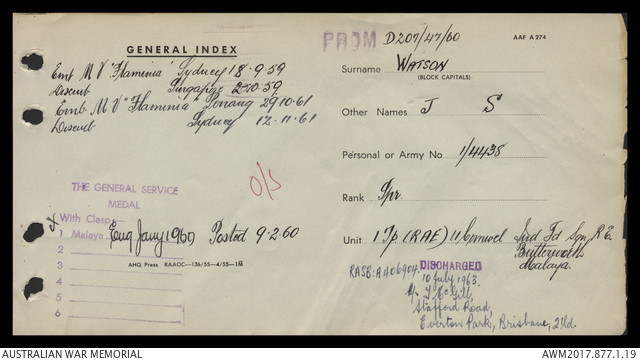 GENERAL INDEX
Emb M V 'Flaminia' Sydney 18-9-59
Disemb Singapore 2-10-59
Emb M.V "Flaminia Penang 29.10.61
Disemb Sydney 12.11.61
O/S
THE GENERAL SERVICE
MEDAL
With Clasp
1 Malaya Enq Jany 1960 Posted 9.2.60
2
3
AHQ Press RAAOC-136/55-4/55-1M
4
5
6
PROM D207/47/60
AAF A 274
Surname WATSON
(BLOCK CAPITALS)
Other Names J S
Personal or Army No 1/4438
Rank Spr.
Unit 1 Tp (RAE) 11 Comwel Ind Fd Sqn R.E.
Butterworth
Malaya.
RASB: A406904. DISCHARGED
10 July 1963.
McGill,
Stafford Road,
Everton Park, Brisbane, Qld.
AUSTRALIAN WAR MEMORIAL
AWM2017.877.1.19